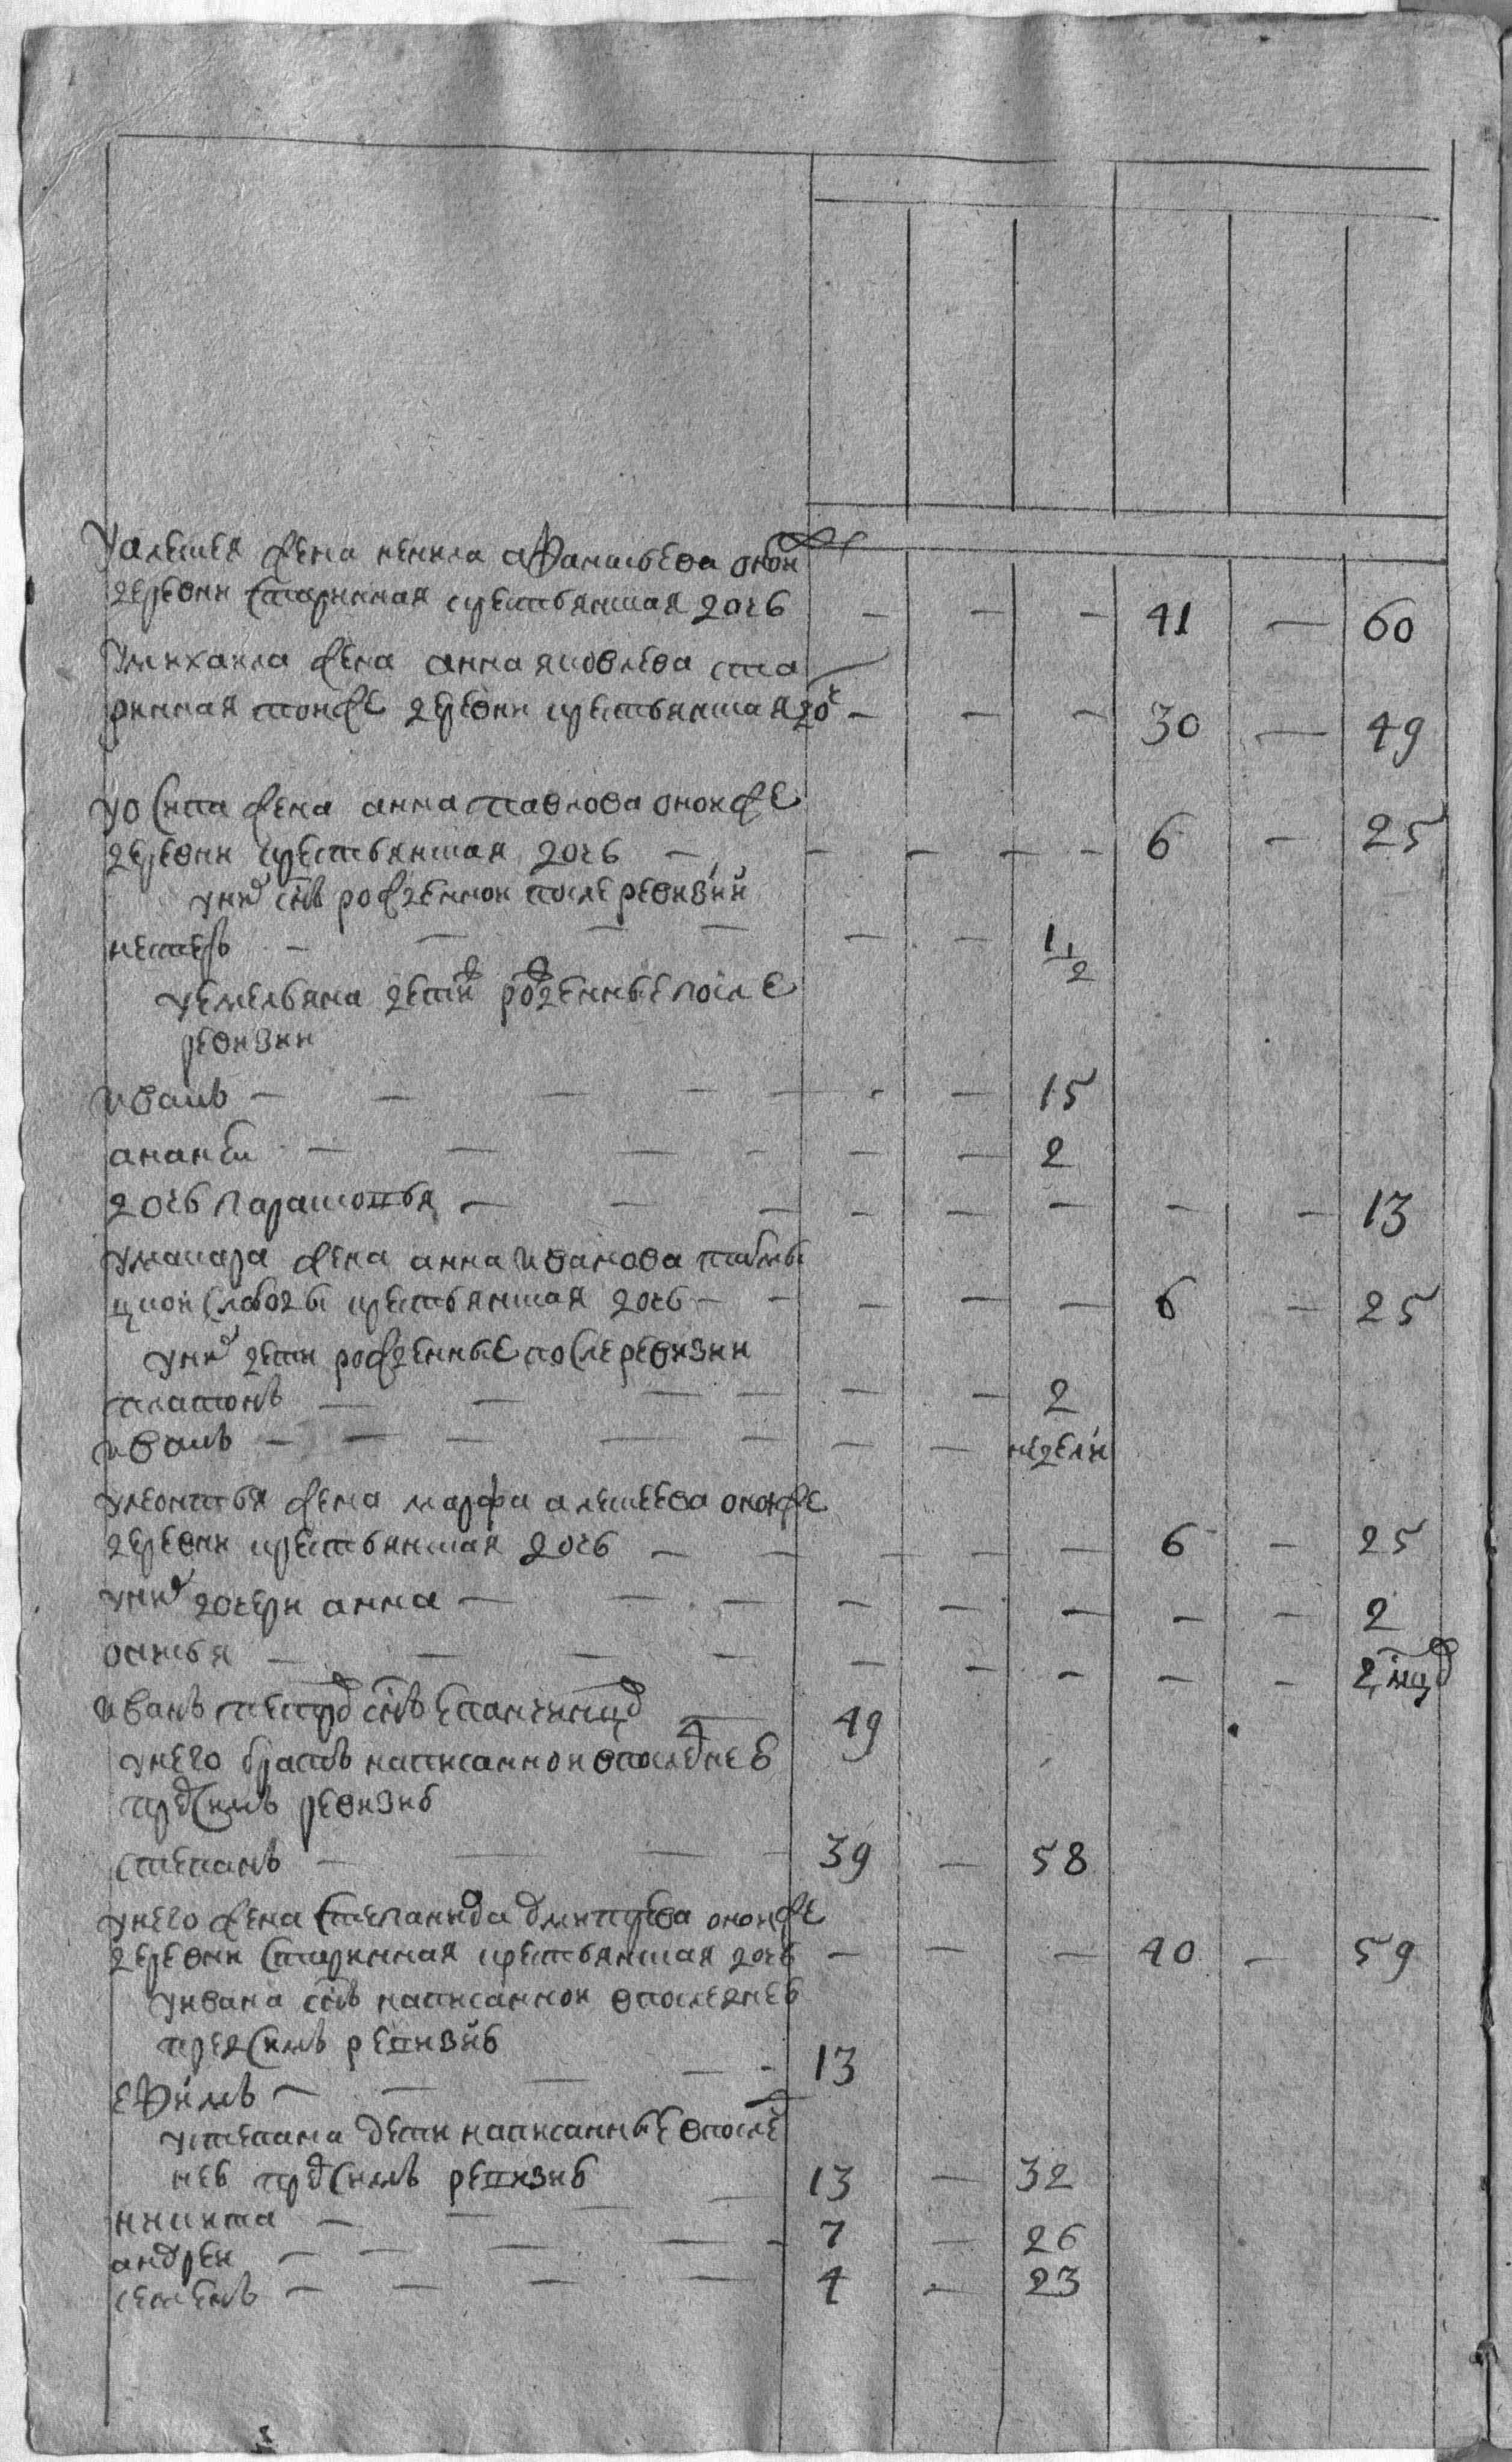 У алеѯея жена ненила афанасьева оной
деревни старинная крестьянская дочь — — — 41 — 60
у михаила жена анна яковлева ста
ринная тойже деревни крестьянская доч — — — 30 — 49
у осипа жена анна павлова онойже
деревни крестьянская дочь — — — — 6 — 25
у них сынъ рожденной после ревизии
нестеръ — — — — — — 1 1/2
у емельяна дети рожденные после
ревизии
иванъ — — — — — — — 15
ананеи — — — — — — 2
дочь парасковья — — — — — — — — 13
у макара жена анна иванова
цкой слободы крестьянская дочь — — — — — 6 — 25
у них дети рожденные после ревизии
платонъ — — — — — — 2
иванъ — — — — — — — недели
у леонтья жена марфа алексеева онойже
деревни крестьянская дочь — — — — — 6 — 25
у них дочери анна — — — — — — — — 2
— — — — — — — — — 2 мцъ
иванъ петровъ сынъ епанчинцовъ — 49
у него братъ написанной в последней
пред симъ ревизие
степанъ — — — — 39 — 58
у него жена степанида дмитрева онойже
деревни старинная крестьянская дочь — — — 40 — 59
у ивана сынъ написанной в последней
пред симъ ревизие
ефимъ — — — — — 13
у степана дети написанные в послед
ней пред симъ ревизие
никита — — — 13 — 32
андреи — — — — — 7 — 26
семенъ — — — — 4 — 23